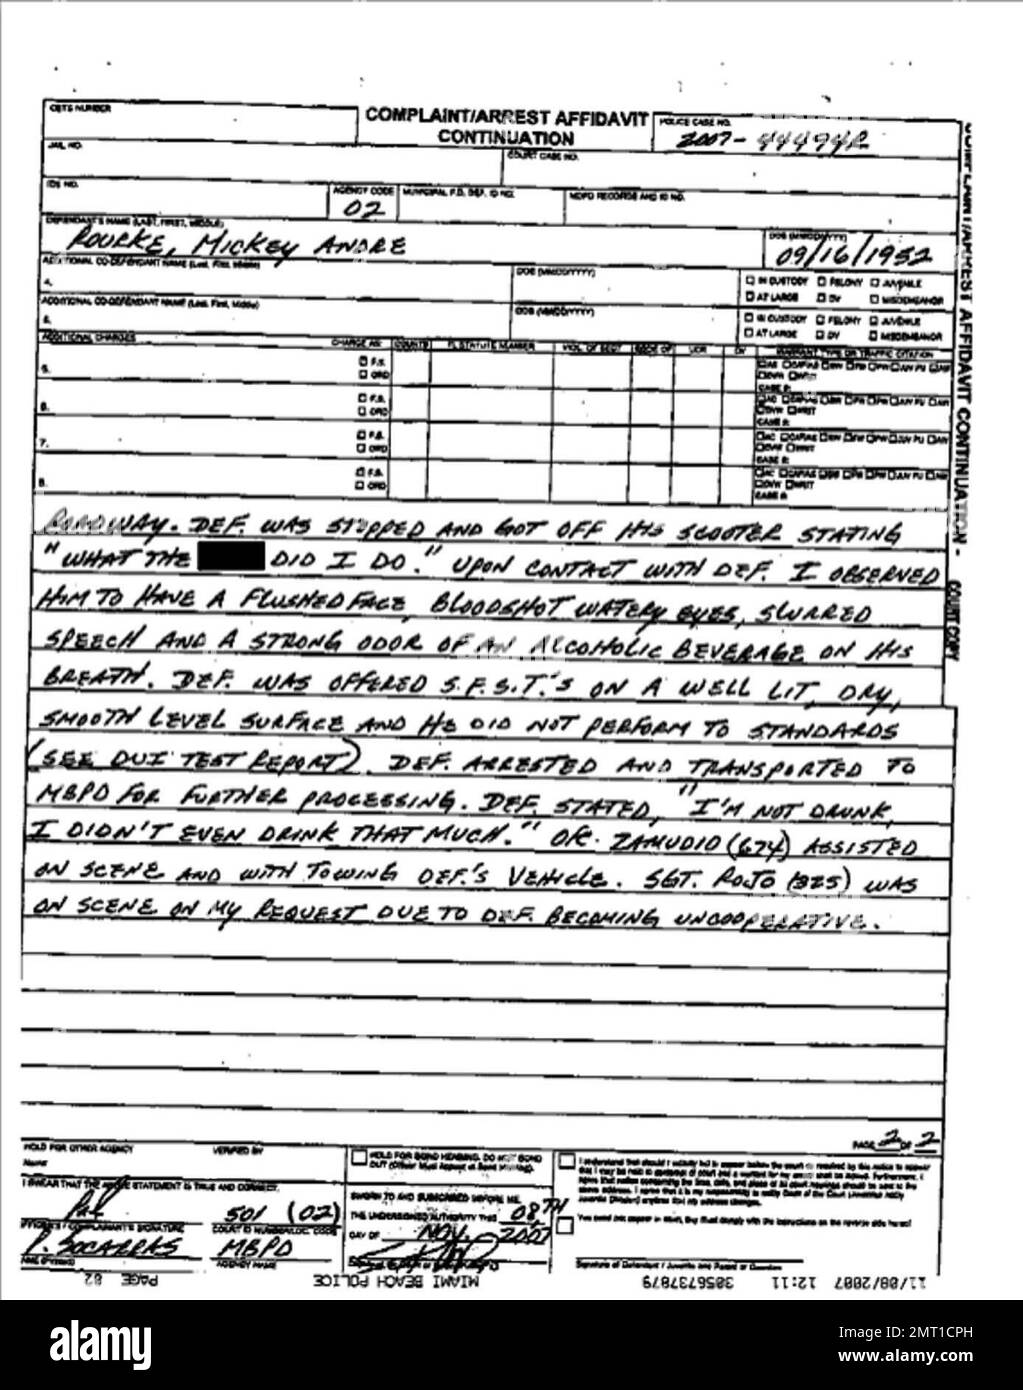 CBTS NUMBER
COMPLAINT/ARREST AFFIDAVIT
CONTINUATION
POLICE CASE NO.
2007-444942
JAIL NO.
COURT CASE NO.
IDS NO.
AGENCY CODE
02
MUNICIPAL P.D. DEF. ID NO.
MDPD RECORDS AND ID NO.
DEFENDANT'S NAME (LAST, FIRST, MIDDLE)
ROURKE, MICKEY ANDRE
DOB (MM/DD/YYYY)
09/16/1952
ADDITIONAL CO-DEFENDANT NAME (Last, First, Middle)
4.
DOB (MM/DD/YYYY)
IN CUSTODY FELONY JUVENILE
AT LARGE DV MISDEMEANOR
ADDITIONAL CO-DEFENDANT NAME (Last, First, Middle)
DOB (MM/DD/YYYY)
IN CUSTODY FELONY JUVENILE
AT LARGE DV MISDEMEANOR
ADDITIONAL CHARGES CHARGE AS: COUNTS FL STATUTE NUMBER VIOL. OF SECT. CODE OF UCR DV WARRANT TYPE OR TRAFFIC CITATION
F.S.
ORD
F.S.
ORD
7.
F.S.
ORD
8.
F.S.
ORD
ROADWAY. DEF. WAS STOPPED AND GOT OFF HIS SCOOTER STATING
"WHAT THE DID I DO." UPON CONTACT WITH DEF. I OBSERVED
HIM TO HAVE A FLUSHED FACE, BLOODSHOT WATERY EYES, SLURRED
SPEECH AND A STRONG ODOR OF AN ALCOHOLIC BEVERAGE ON HIS
BREATH. DEF. WAS OFFERED S.F.S.T.'S ON A WELL LIT, DRY,
SMOOTH LEVEL SURFACE AND HE DID NOT PERFORM TO STANDARDS
(SEE DUI TEST REPORT). DEF. ARRESTED AND TRANSPORTED TO
MBPD FOR FURTHER PROCESSING. DEF. STATED, "I'M NOT DRUNK,
I DIDN'T EVEN DRINK THAT MUCH." OFC. ZAMUDIO (674) ASSISTED
ON SCENE AND WITH TOWING DEF.'S VEHICLE. SGT. ROJO (325) WAS
ON SCENE ON MY REQUEST DUE TO DEF. BECOMING UNCOOPERATIVE.
PAGE 2 OF 2
HOLD FOR OTHER AGENCY VERIFIED BY
Name
I SWEAR THAT THE ABOVE STATEMENT IS TRUE AND CORRECT.
501 (02)
OFFICER'S / COMPLAINANT'S SIGNATURE COURT ID NUMBER/LOC. CODE
P. SOCARRAS MBPD
AGENCY NAME
HOLD FOR BOND HEARING. DO NOT BOND
OUT (Officer Must Appear at Bond Hearing).
SWORN TO AND SUBSCRIBED BEFORE ME,
THE UNDERSIGNED AUTHORITY THIS 08TH
DAY OF NOV. 2007
Signature of Defendant / Juvenile and Parent or Guardian
11/08/2007 12:11 3056737079 MIAMI BEACH POLICE PAGE 02
COMPLAINT/ARREST AFFIDAVIT CONTINUATION - COURT COPY
alamy
Image ID: 2MT1CPH
www.alamy.com